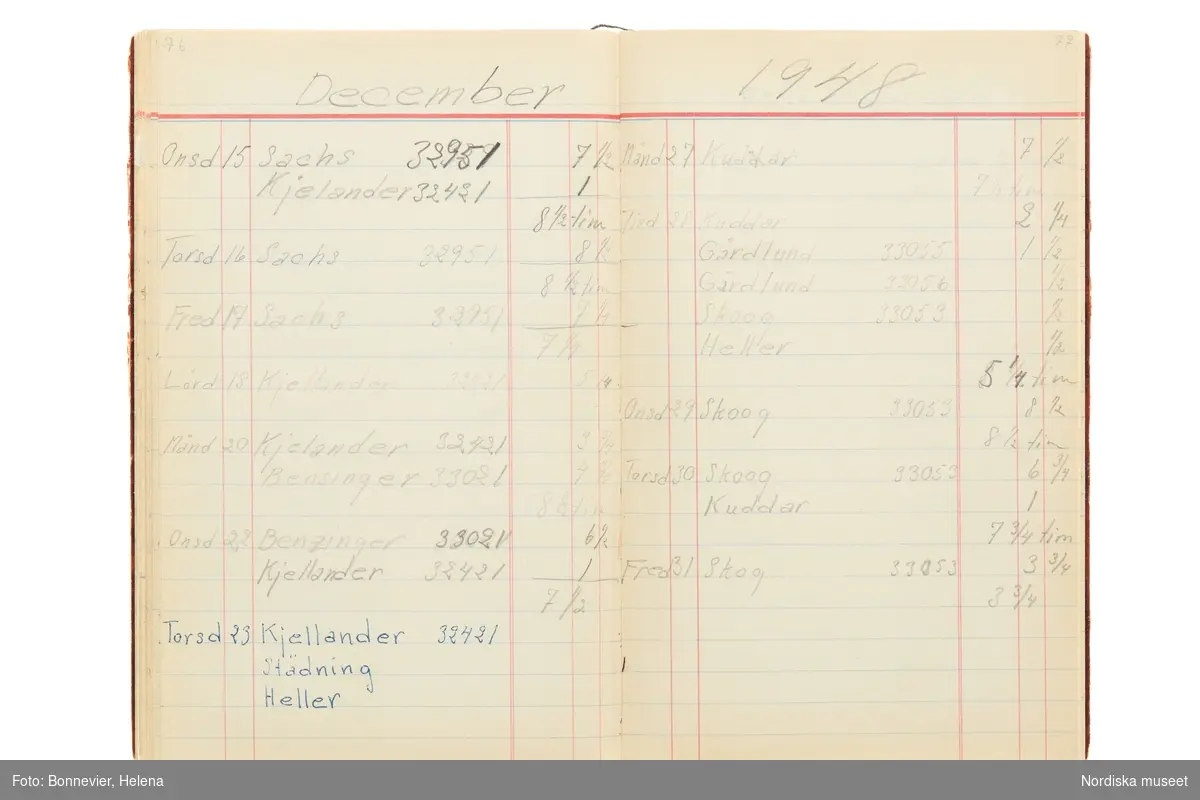 76
December
Onsd 15 Sachs 32951 7 1/2
Kjelander 32421 1
8 1/2 tim
Torsd 16 Sachs 32951 8 1/2
8 1/2 tim
Fred 17 Sachs 32951
7
Lörd 18 Kjellander
Månd 20 Kjelander 32421 3
Bensinger 33021 4
Onsd 22 Benzinger 33021 6 1/2
Kjellander 32421 1
7 1/2
Torsd 23 Kjellander 32421
Städning
Heller
77
1948
Månd 27 Kuddar 7 1/2
tim
28 Kuddar 2 1/4
Gårdlund 33055 1 1/2
Gårdlund 33056 1/2
Skoog 33053 1/2
Heller 1/2
5 1/4 tim
Onsd 29 Skoog 33053 8 1/2
8 1/2 tim
Torsd 30 Skoog 33053 6 3/4
Kuddar 1
7 3/4 tim
Fred 31 Skog 33053 3 3/4
3 3/4
Foto: Bonnevier, Helena
Nordiska museet